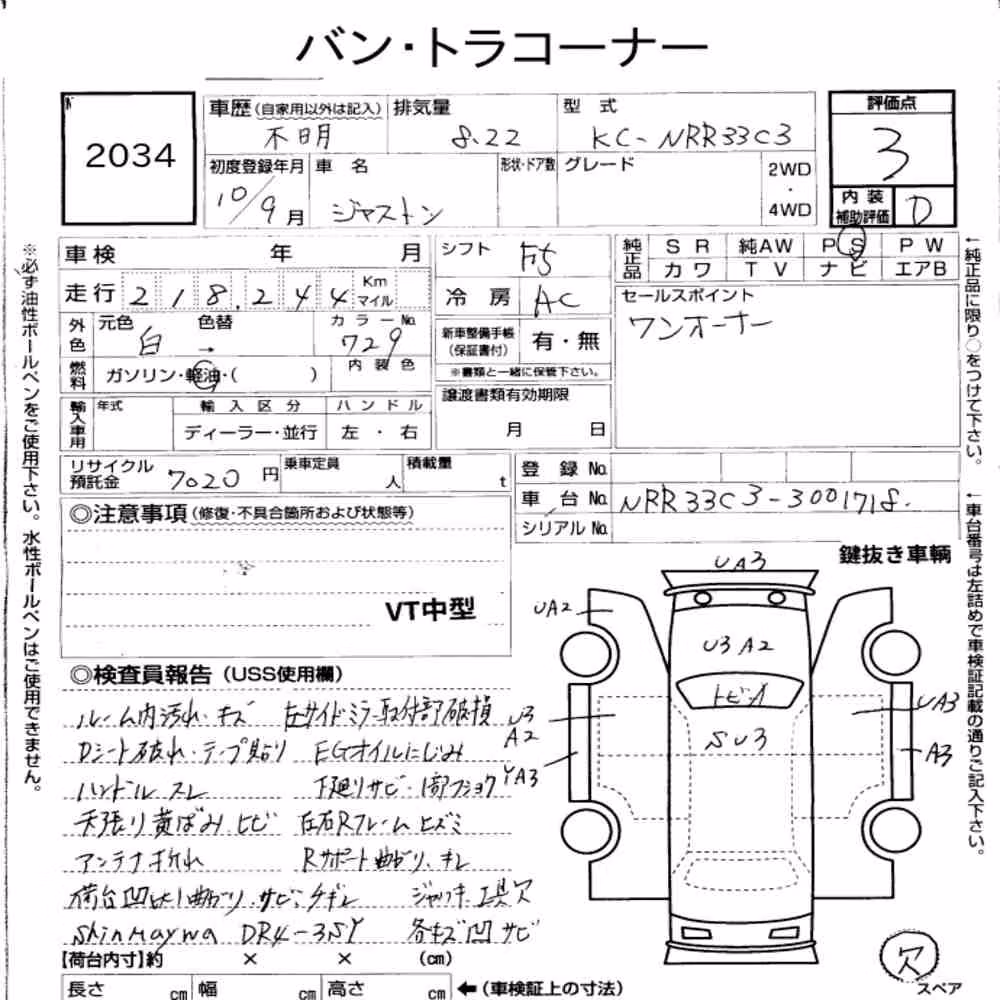 バン・トラコーナー
2034
車歴(自家用以外は記入) 排気量 型式 評価点
不明 8.22 KC-NRR33C3 3
初度登録年月 車名 形状・ドア数 グレード 2WD・4WD 内装補助評価 D
10/9月 ジャストン
車検 年 月 シフト F5 純正品 SR 純AW PS PW
カワ TV ナビ エアB
走行 218,244 Km マイル 冷房 AC セールスポイント
ワンオーナー
外色 元色 白 色替 → カラーNo. 729
新車整備手帳(保証書付) 有・無
※書類と一緒に保管下さい。
燃料 ガソリン・軽油・( ) 内装色
譲渡書類有効期限
月 日
輸入車用 年式 輸入区分 ハンドル
ディーラー・並行 左・右
リサイクル預託金 7020円 乗車定員 人 積載量 t
登録No.
車台No. NRR33C3-3001718.
シリアルNo.
◎注意事項(修復・不具合箇所および状態等)
VT中型
鍵抜き車輌
◎検査員報告(USS使用欄)
ルーム内汚れ・キズ 左サイドミラー取付部破損
Dシート破れ・テープ貼り EGオイルにじみ
ハンドルスレ 下廻りサビ・1部フショク
天張り黄ばみ ヒビ 左右Rフレームヒズミ
アンテナ折れ Rサポート曲がり、キレ
荷台凹大1曲がり サビ、チギレ ジャッキ工具欠
ShinMaywa DR4-35Y 各キズ凹サビ
【荷台内寸】約 × × (cm)
長さ cm 幅 cm 高さ cm ←(車検証上の寸法)
UA3
UA2
U3A2
トビA
SU3
U3
A2
YA3
UA3
A3
欠
スペア
※必ず油性ボールペンをご使用下さい。水性ボールペンはご使用できません。
←純正品に限り○をつけて下さい。
←車台番号は左詰めで車検証記載の通りご記入下さい。